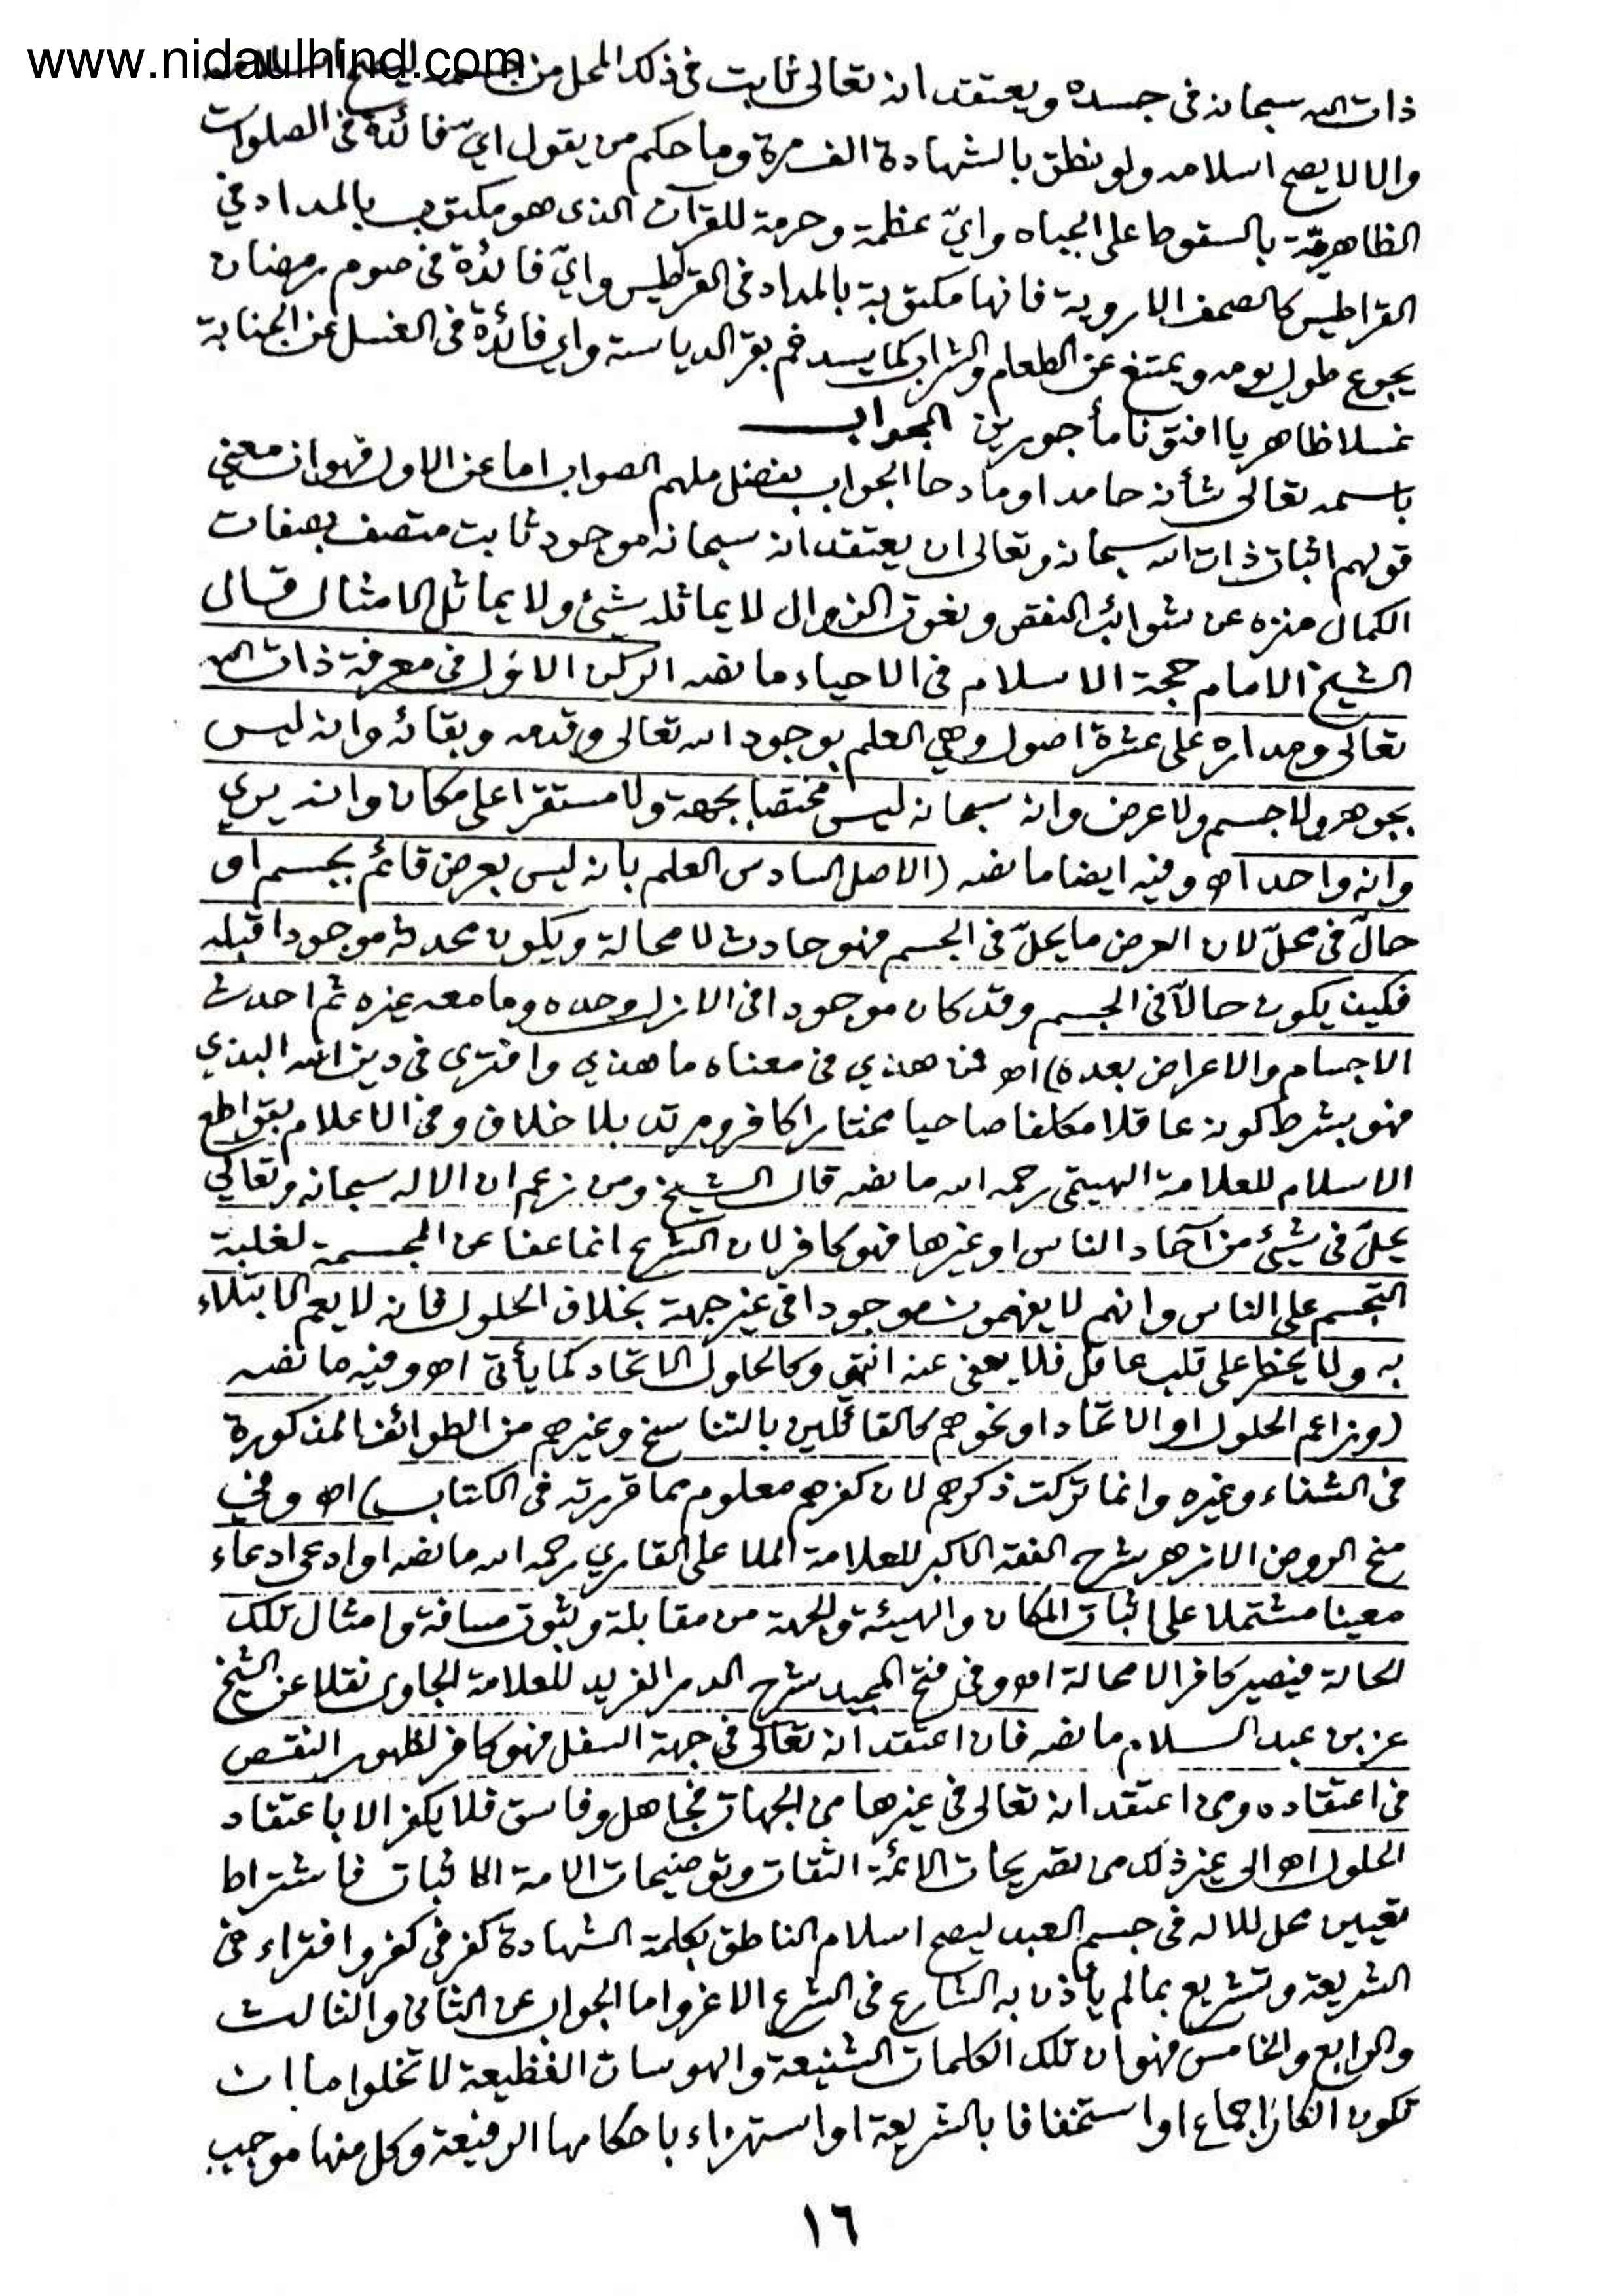 www.nidaulhind.com
ذات الله سبحانه في جسده ويعتقد انه تعالى ثابت في ذلك المحل من جسمه ليصح اسلامه
والا لا يصح اسلامه ولو نطق بالشهادة الف مرة وما حكم من يقول ايّ فائدة في الصلوات
الظاهريّة بالسقوط على الجباه وايّ عظمة وحرمة للقرآن الذى هو مكتوب بالمداد في
القراطيس كالصحف الاروبية فانها مكتوبة بالمداد في القراطيس وايّ فائدة في صوم رمضان
يجوع طول يومه ويمتنع عن الطعام والشراب كما يسد فم بقر الدياسة واي فائدة في الغسل عن الجنابة
غسلا ظاهريا افتونا مأجورين الجواب
باسمه تعالى شأنه حامدا ومادحا الجواب بفضل ملهم الصواب اما عن الاول فهو ان معنى
قولهم اثبات ذات الله سبحانه وتعالى ان يعتقد انه سبحانه موجود ثابت متصف بصفات
الكمال منزه عن شوائب النقص ونعوت الزوال لا يماثله شيئ ولا يماثل الامثال قال
الشيخ الامام حجة الاسلام في الاحياء ما نصه الركن الاول في معرفة ذات الله
تعالى ومداره على عشرة اصول وهي العلم بوجود الله تعالى وقدمه وبقائه وانه ليس
بجوهر ولا جسم ولا عرض وانه سبحانه ليس مختصا بجهة ولا مستقرا على مكان وانه يرى
وانه واحد اه وفيه ايضا ما نصه (الاصل السادس العلم بانه ليس بعرض قائم بجسم او
حالّ في محلّ لان العرض ما يحلّ في الجسم فهو حادث لا محالة ويكون محدثه موجودا قبله
فكيف يكون حالّا في الجسم وقد كان موجودا في الازل وحده وما معه غيره ثم احدث
الاجسام والاعراض بعده) اه فمن هذي في معناه ما هذي وافترى في دين الله البذي
فهو بشرط كونه عاقلا مكلفا صاحيا مختارا كافر ومرتد بلا خلاف وفي الاعلام بقواطع
الاسلام للعلامة الهيتمى رحمه الله ما نصه قال الشيخ ومن زعم ان الاله سبحانه وتعالى
يحلّ في شيئ من آحاد الناس او غيرها فهو كافر لان الشرع انما عفا عن المجسمة لغلبة
التجسم على الناس وانهم لا يفهمون موجودا في غير جهة بخلاف الحلول فانه لا يعم الابتلاء
به ولا يخطر على قلب عاقل فلا يعفى عنه انتهى وكالحلول الاتحاد كما يأتى اه وفيه ما نصه
(وزاعم الحلول او الاتحاد او نحوهم كالقائلين بالتناسخ وغيرهم من الطوائف المذكورة
في الشفاء وغيره وانما تركت ذكرهم لان كفرهم معلوم مما قررته في الكتاب) اه وفي
منح الروض الازهر شرح الفقه الاكبر للعلامة الملا على القاري رحمه الله ما نصه او ادعى ادعاء
معينا مشتملا على اثبات المكان والهيئة والجهة من مقابلة وثبوت مسافة وامثال تلك
الحالة فيصير كافرا لا محالة اه وفي فتح المجيد شرح الدر الفريد للعلامة الجاوى نقلا عن الشيخ
عز بن عبد السلام ما نصه فان اعتقد انه تعالى في جهة السفل فهو كافر لظهور النقص
في اعتقاده ومن اعتقد انه تعالى في غيرها من الجهات فجاهل وفاسق فلا يكفر الا باعتقاد
الحلول اه الى غير ذلك من تصريحات الائمة الثقات وتوضيحات الامة الاثبات فاشتراط
تعيين محل للاله في جسم العبد ليصح اسلام الناطق بكلمة الشهادة كفر في كفر وافتراء في
الشريعة وتشريع بما لم يأذن به الشارع في الشرع الاغر واما الجواب عن الثانى والثالث
والرابع والخامس فهو ان تلك الكلمات الشنيعة والهوسات الفظيعة لا تخلو اما ان
تكون انكار اجماع او استخفافا بالشريعة او استهزاء باحكامها الرفيعة وكل منها موجب
١٦